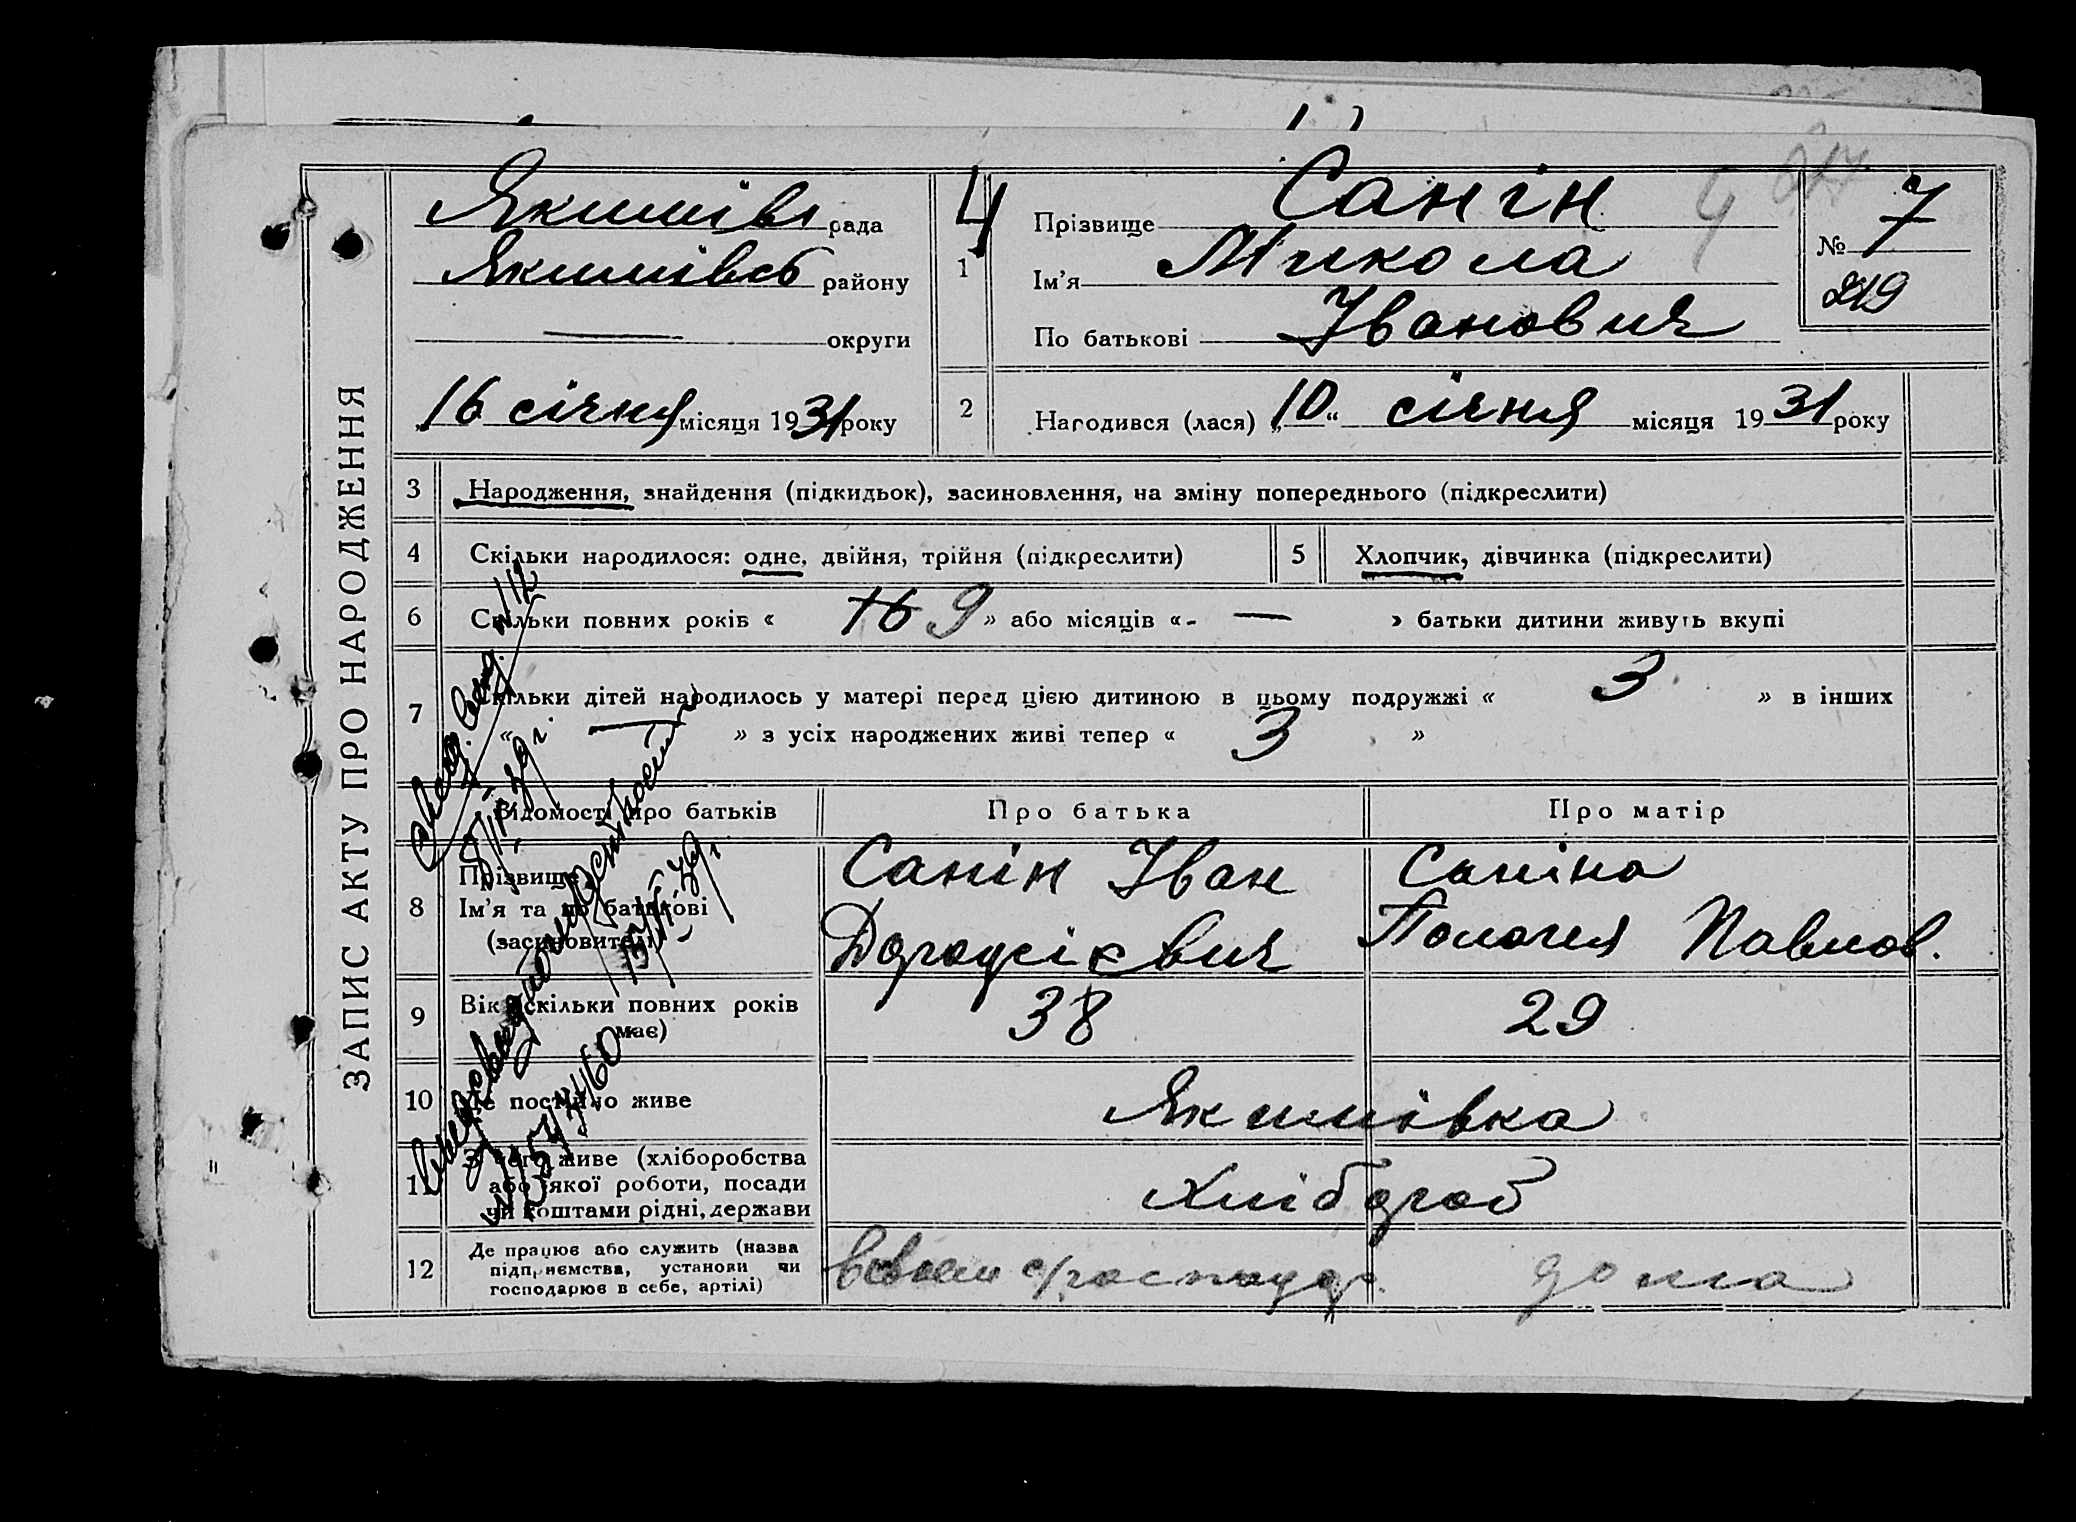 ЗАПИС АКТУ ПРО НАРОДЖЕННЯ
Якимівс рада
Якимівсь району
— округи
„16 січня місяця 1931 року
4
1 Прізвище Санін
Ім'я Микола
По батькові Іванович
№ 7
219
2 Народився (лася) „10“ січня місяця 1931 року
3 Народження, знайдення (підкидьок), засиновлення, на зміну попереднього (підкреслити)
4 Скільки народилося: одне, двійня, трійня (підкреслити)
5 Хлопчик, дівчинка (підкреслити)
6 Скільки повних років « 16 9 » або місяців «- — » батьки дитини живуть вкупі
7 Скільки дітей народилось у матері перед цією дитиною в цьому подружжі « 3 » в інших
« — » з усіх народжених живі тепер « 3 »
Відомості про батьків Про батька Про матір
8 Прізвище,
Ім'я та по батькові
(засиновителі)
Санін Іван
Саніна
Пологея Павлов.
9 Вік (скільки повних років
має)
38 29
10 Де постійно живе Якимівка
11 З чого живе (хліборобства
або якої роботи, посади
чи коштами рідні, держави
Хлібороб
12 Де працює або служить (назва
підприємства, установи чи
господарює в себе, артілі)
в своем с/господар.
дома